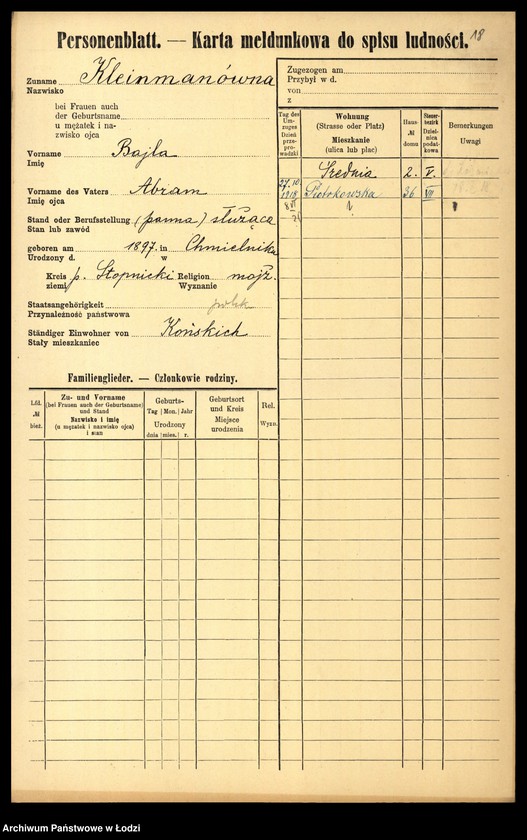 Personenblatt. — Karta meldunkowa do spisu ludności. 18
Zuname Kleinmanówna
Nazwisko
bei Frauen auch
der Geburtsname
u mężatek i na-
zwisko ojca
Vorname Bajla
Imię
Vorname des Vaters Abram
Imię ojca
Stand oder Berufsstellung (panna) służąca
Stan lub zawód
geboren am 1897 in Chmielnika
Urodzony d. w
Kreis p. Stopnicki Religion mojż.
ziemi Wyznanie
Staatsangehörigkeit polsk
Przynależność państwowa
Ständiger Einwohner von Końskich
Stały mieszkaniec
Zugezogen am
Przybył w d.
von
z
Tag des Um-zuges Dzień prze-prowadzki
Wohnung
(Strasse oder Platz)
Mieszkanie
(ulica lub plac)
Haus-
№
domu
Steuer-bezirk Dziel-nica podat-kowa
Bemerkungen
Uwagi
Średnia 2. V.
27.10. 1918 Piotrkowska 36 VII
Familienglieder. — Członkowie rodziny.
Lfd.
№
bież.
Zu- und Vorname
(bei Frauen auch der Geburtsname)
und Stand
Nazwisko i imię
(u mężatek i nazwisko ojca)
i stan
Geburts-
Tag Mon. Jahr
Urodzony
dnia mies. r.
Geburtsort
und Kreis
Miejsce
urodzenia
Rel.
Wyzn.
Archiwum Państwowe w Łodzi